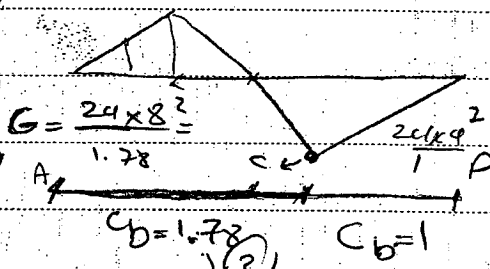 G = 24×8² / 1.78 =
24×4² / 1
C
A
C_b=1.78
C_b=1